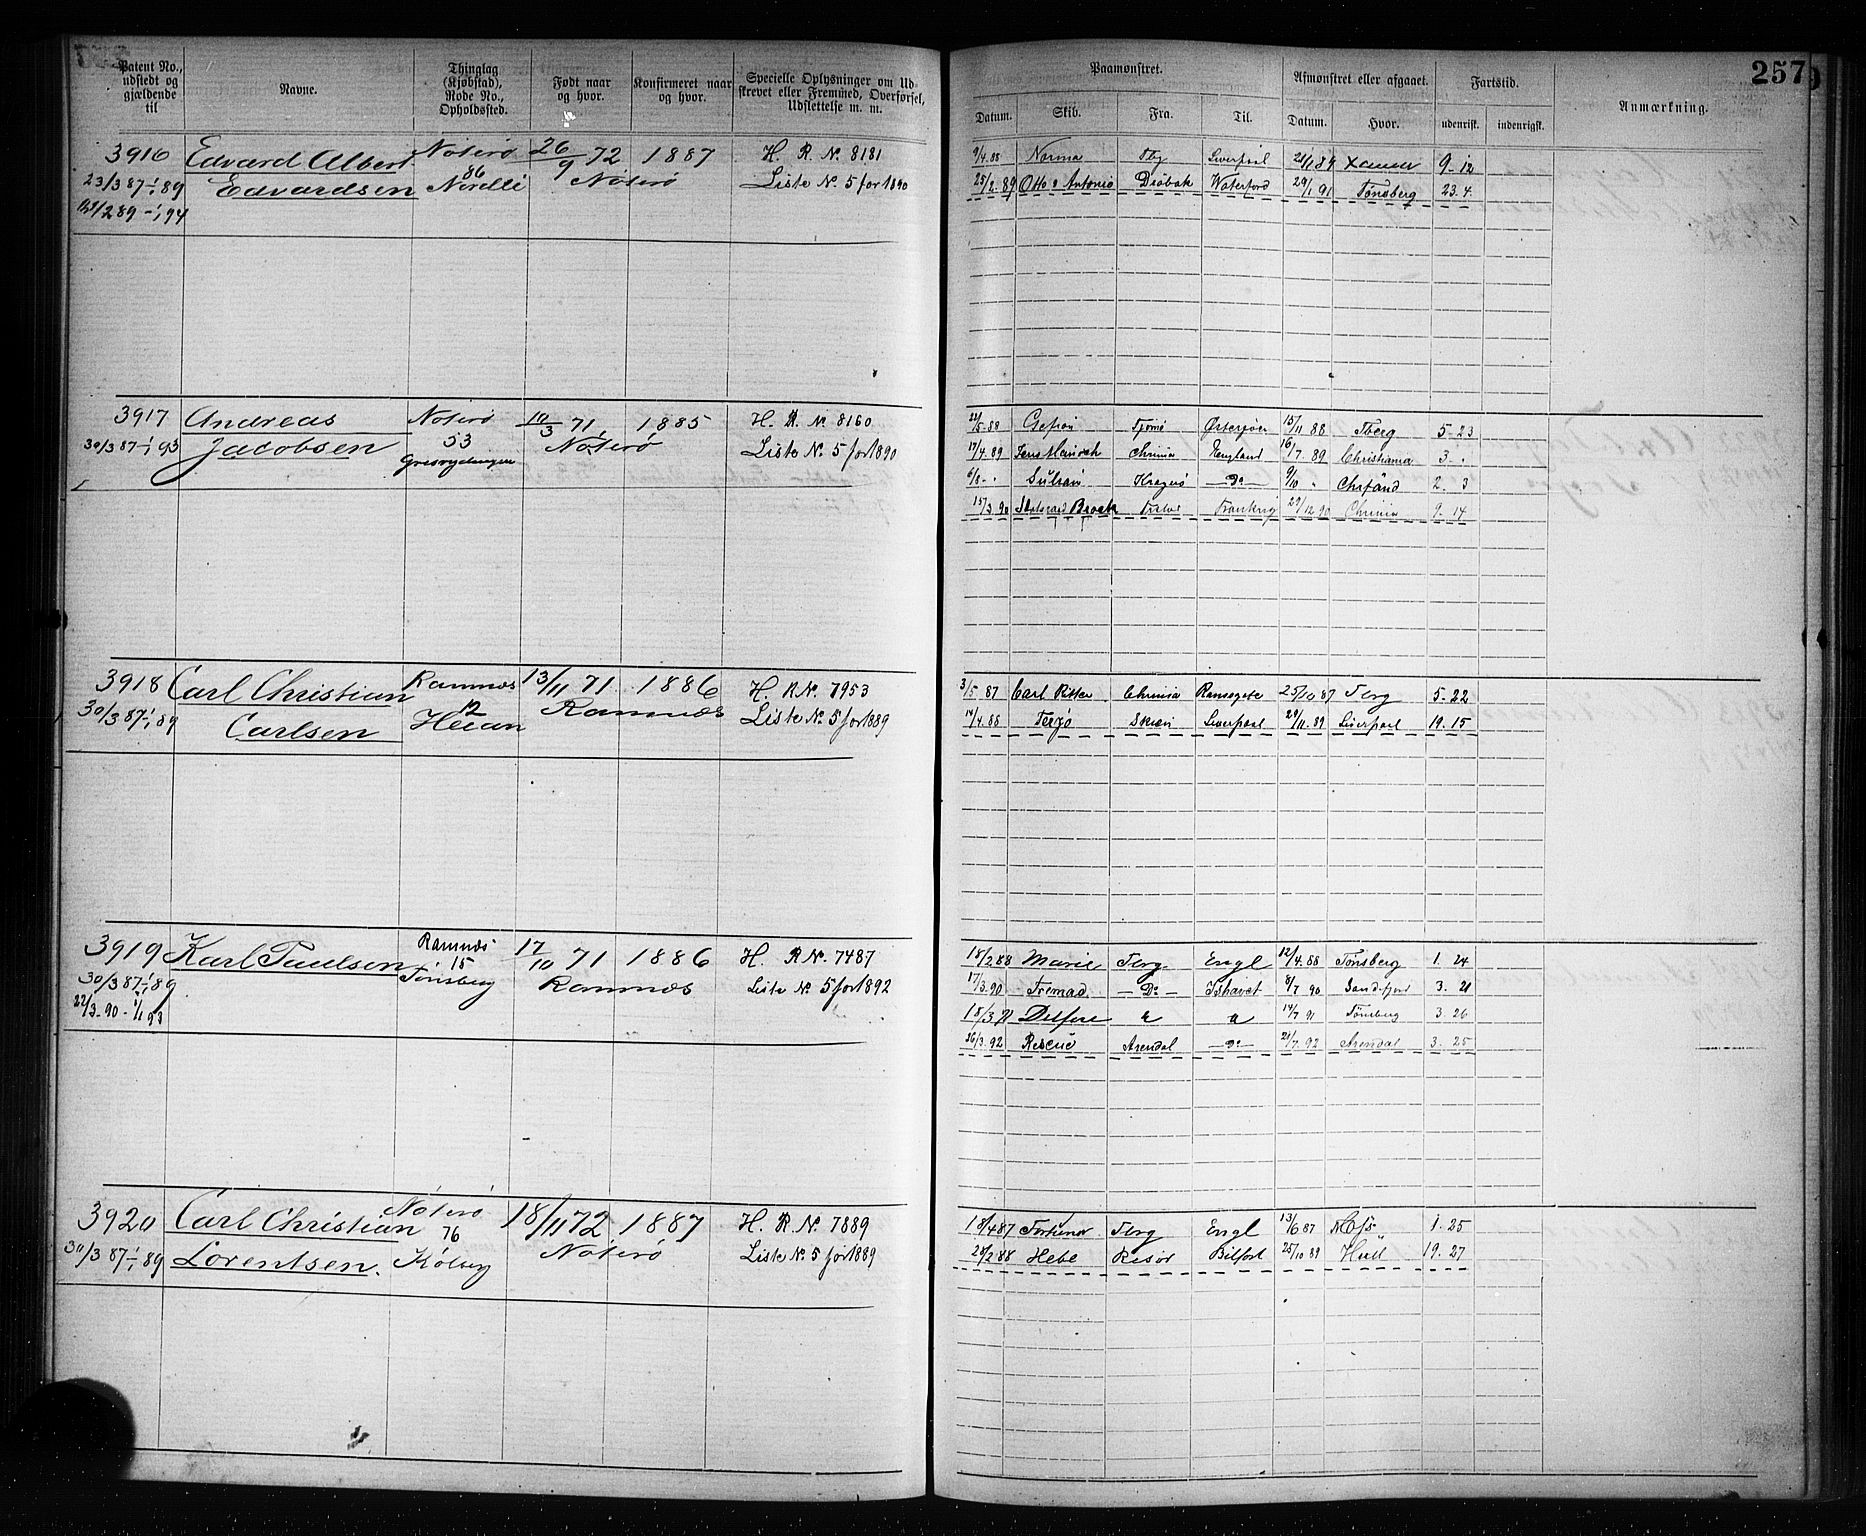 257
Patent No., udstedt og gjældende til
Navne.
Thinglag (Kjøbstad), Rode No., Opholdssted.
Født naar og hvor.
Konfirmeret naar og hvor.
Specielle Oplysninger om Udskrevet eller Fremmed, Overførsel, Udslettelse m. m.
Paamønstret.
Afmønstret eller afgaaet.
Fartstid.
Anmærkning.
Datum. Skib. Fra. Til. Datum. Hvor. udenrisk. indenrigsk.
3916 Edvard Albert Nøterø 26/9 72 1887 H. R. No. 8181
23/3 87-1/1 89 Edvardsen 86 Nøterø Liste No. 5 for 1890
2 89 - 1/1 94
9/4 88 Norma Tbg Liverpool 9-12
25/2. 89 Otto & Antonio Drøbak Waterford 29/1. 91 Tønsberg 23. 4.
3917 Andreas Nøterø 10/3 71, 1885 H. R. No 8160
30/3 87-1/1 93 Jacobsen 53 Nøterø Liste No. 5 for 1890
22/5 88 Tjømø 15/11 88 Tberg 5-23
17/4. 89 Chrinia England 16/7. 89 Christiania 3 -
6/8 - " Kragerø - Do - 9/10 " Chrsand 2. 3
15/3. 90 29/12. 90 Chrinia 9-14
3918 Carl Christian Ramnæs 13/11 71 1886 H. R No. 7953
30/3 87-1/1 89 Carlsen 12 Heian Ramnæs Liste No. 5 for 1889
3/5. 87 Carl Ritter Chrinia Ramsgate 25/10 87 Tbrg 5-22
14/4. 88 Terjø Skien Liverpool 29/11. 89 Liverpool 19. 15
3919 Karl Paulsen Ramnæs 17/10 71 1886 H. R No. 7487
30/3 87-1/1 89 15 Tønsberg Ramnæs Liste No. 5 for 1892
22/3-90-1/1 93
18/2. 88 Marie Tbrg. Engl 12/4. 88 Tønsberg 1. 24
17/3. 90 Fremad. - Do - Ishavet 8/7 90 Sandefjord 3. 21
18/3. 91 " " 14/7 91 Tønsberg 3. 26
26/3. 92 Rescue Arendal - Do - 21/7. 92 Arendal 3. 25
3920 Carl Christian Nøterø 18/11 72 1887 H. R. No. 7889
30/3 87-1/1 89 Lorentsen. 76 Nøterø Liste No. 5 for 1889
Kølbg
18/4 87 Fortuna Tbrg Engl 13/6 87 Moss 1. 25
28/2. 88 Hebe Risør Belfast 25/10 89 Hull 19. 27